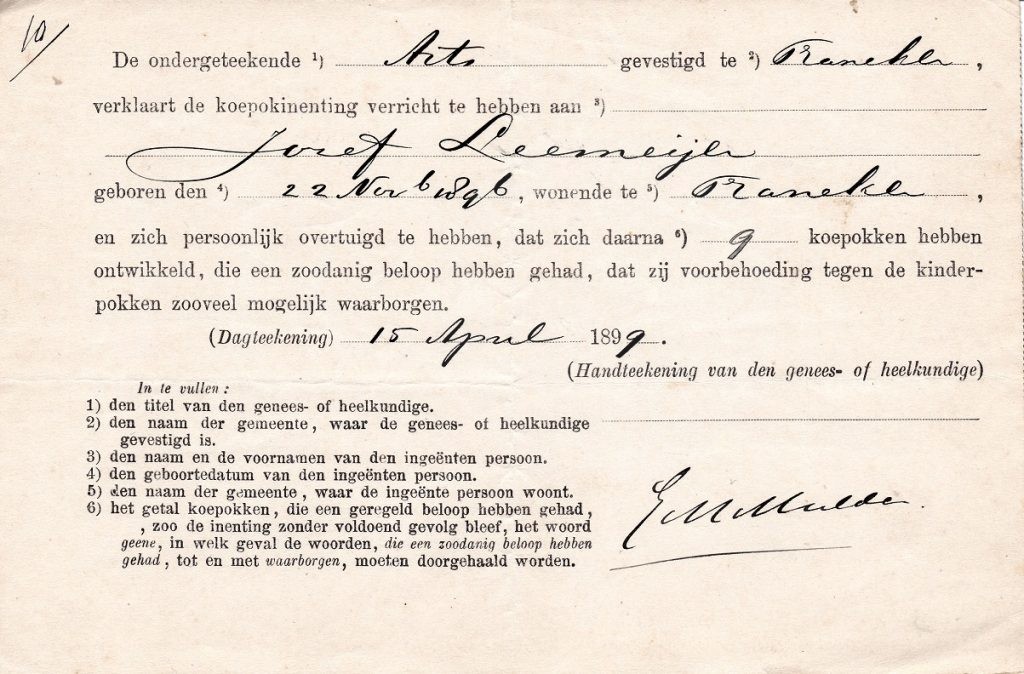 10/
De ondergeteekende ¹) Arts gevestigd te ²) Franeker,
verklaart de koepokinenting verricht te hebben aan ³)
Josef Leemeijer
geboren den ⁴) 22 Novb 1896, wonende te ⁵) Franeker,
en zich persoonlijk overtuigd te hebben, dat zich daarna ⁶) 9 koepokken hebben
ontwikkeld, die een zoodanig beloop hebben gehad, dat zij voorbehoeding tegen de kinder-
pokken zooveel mogelijk waarborgen.
(Dagteekening) 15 April 1899.
(Handteekening van den genees- of heelkundige)
In te vullen:
1) den titel van den genees- of heelkundige.
2) den naam der gemeente, waar de genees- of heelkundige
gevestigd is.
3) den naam en de voornamen van den ingeënten persoon.
4) den geboortedatum van den ingeënten persoon.
5) den naam der gemeente, waar de ingeënte persoon woont.
6) het getal koepokken, die een geregeld beloop hebben gehad,
, zoo de inenting zonder voldoend gevolg bleef, het woord
geene, in welk geval de woorden, die een zoodanig beloop hebben
gehad, tot en met waarborgen, moeten doorgehaald worden.
E M Mulder